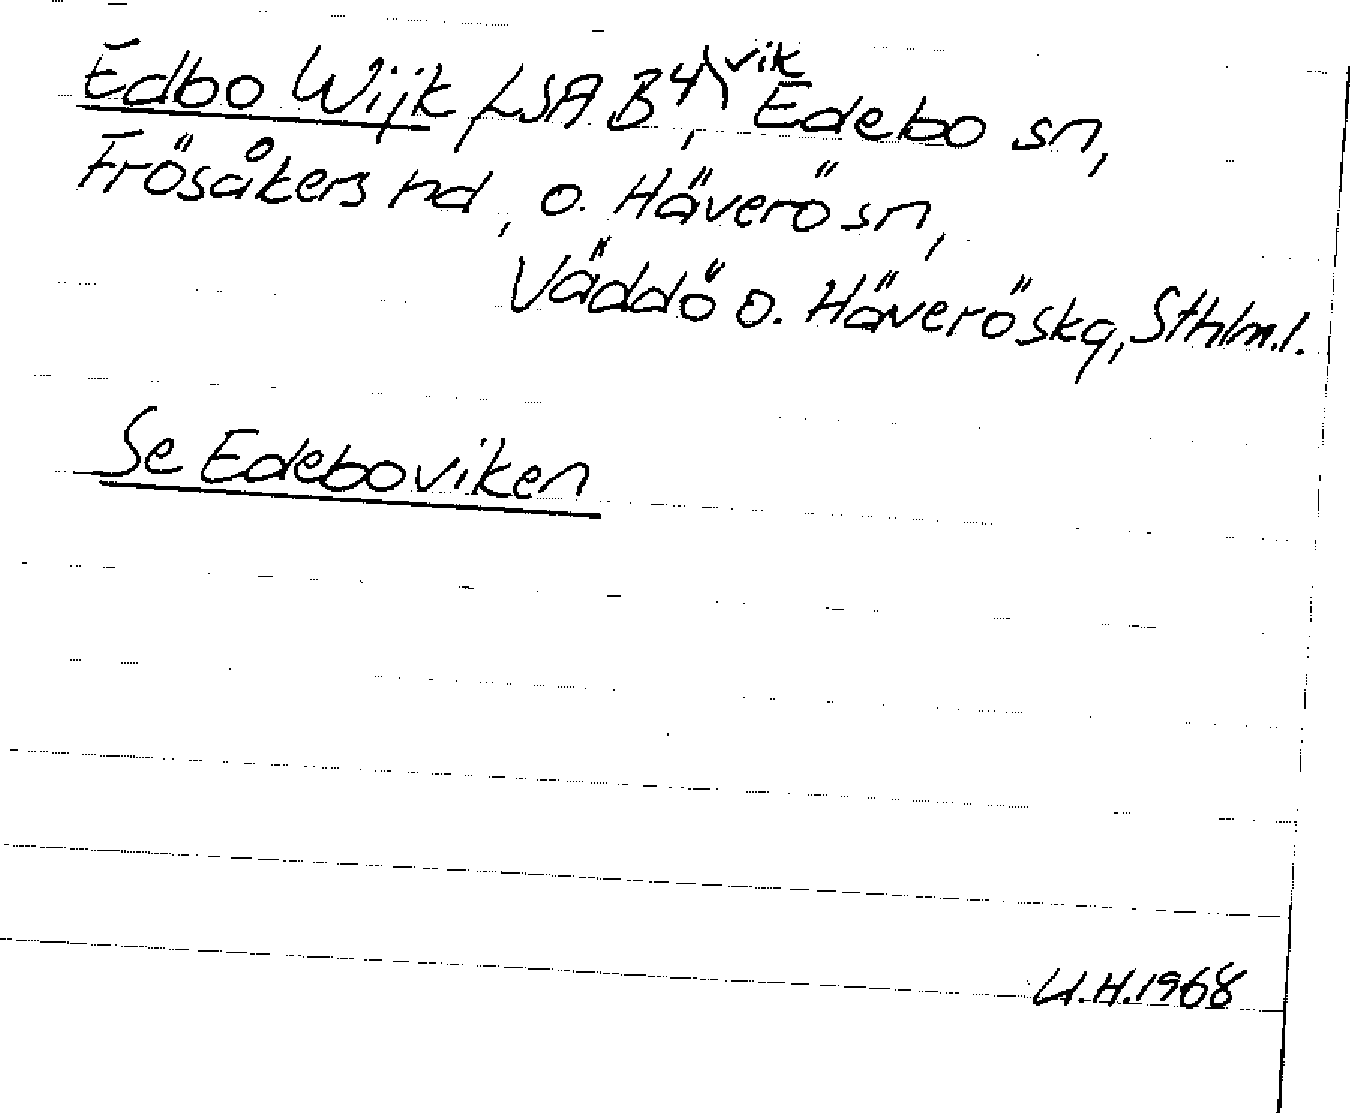 Edbo Wijk (LSA B4), vik Edebo sn,
Frösåkers hd, o. Häverö sn,
Väddö o. Häverö skg, Sthlm.l.
Se Edeboviken
U.H.1968